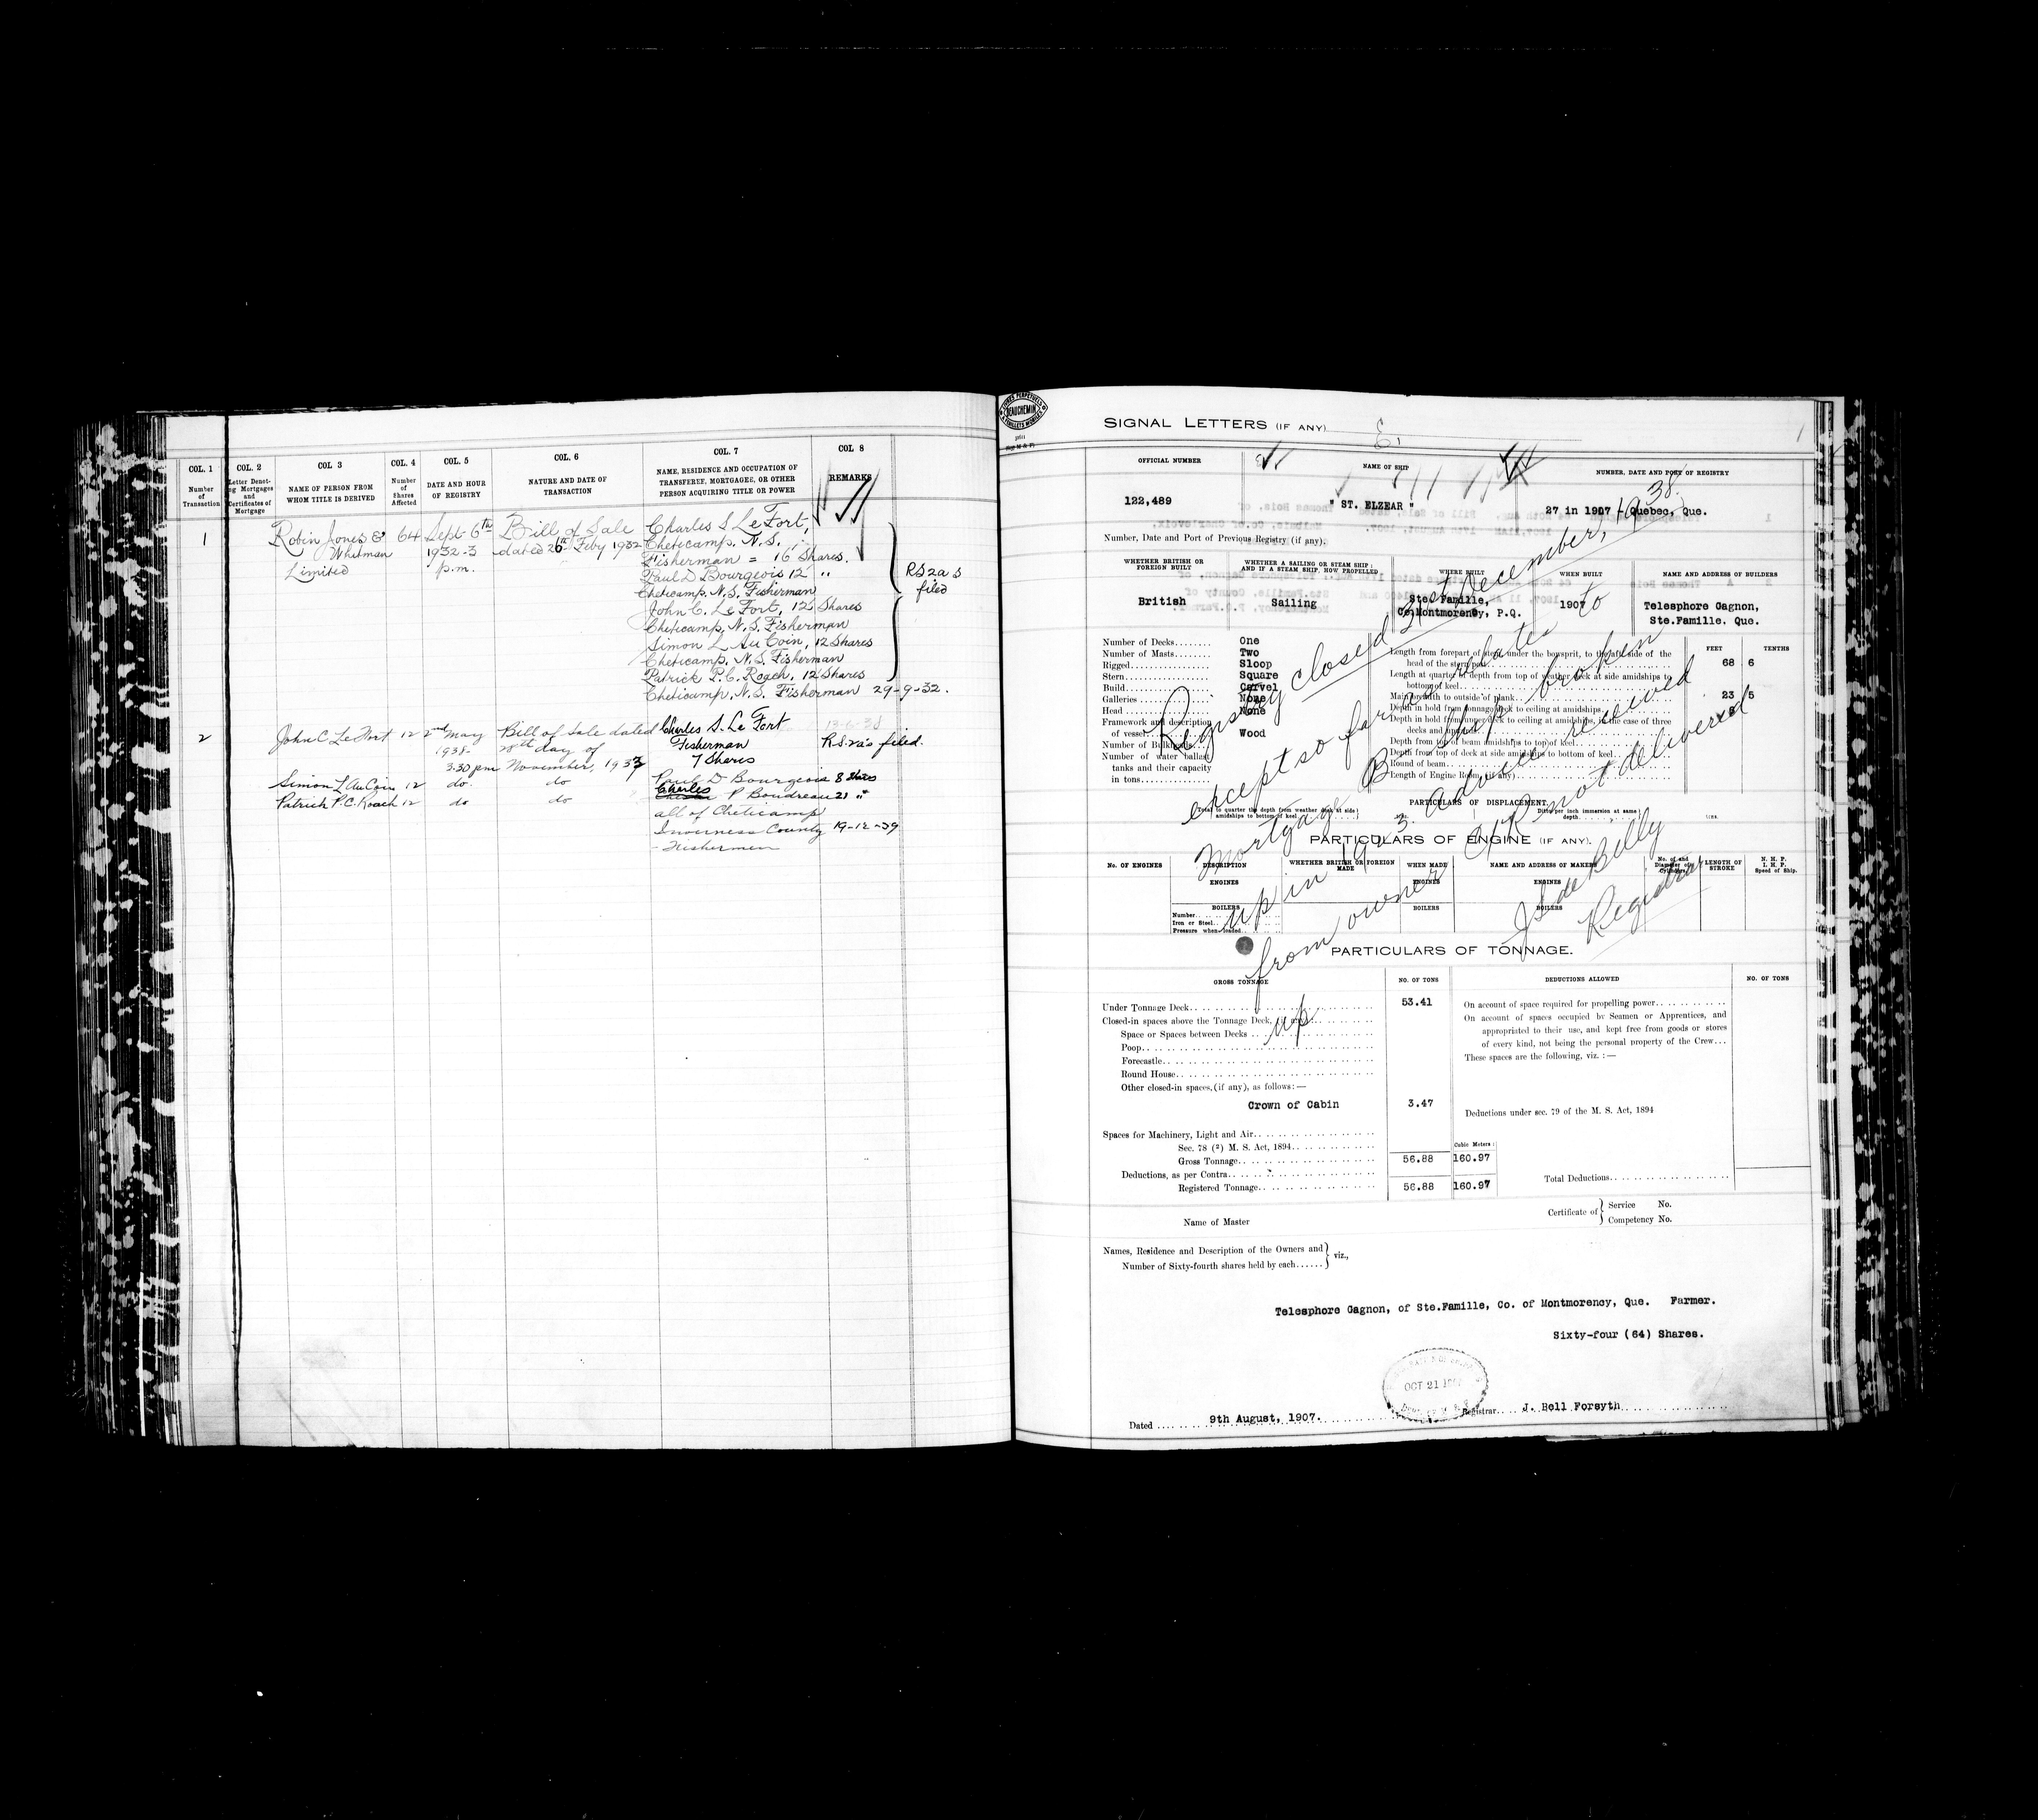 COL. 1
Number
of
Transaction
COL. 2
Letter Denot-
ing Mortgages
and
Certificates of
Mortgage
COL 3
NAME OF PERSON FROM
WHOM TITLE IS DERIVED
COL. 4
Number
of
Shares
Affected
COL. 5
DATE AND HOUR
OF REGISTRY
COL. 6
NATURE AND DATE OF
TRANSACTION
COL. 7
NAME, RESIDENCE AND OCCUPATION OF
TRANSFEREE, MORTGAGEE, OR OTHER
PERSON ACQUIRING TITLE OR POWER
COL 8
REMARKS
1 Robin Jones & 64 Sept. 6th Bill of Sale Charles S Le Fort,
Whitman 1932-3 dated 26th Feby 1932 Cheticamp. N.S.
Limited p.m. Fisherman = 16 Shares.
Paul D Bourgeois 12 "
Cheticamp. N.S. Fisherman
John C. Le Fort, 12 Shares
Cheticamp, N.S. Fisherman
Simon L Au Coin, 12 Shares
Cheticamp, N.S. Fisherman
Patrick P.C. Roach, 12 Shares
Cheticamp, N.S. Fisherman 29-9-32.
RS2a s
filed
2 John C Le Fort 12 2nd May Bill of Sale dated Charles S. Le Fort 13-6-38
1938- 28th day of Fisherman R.S.2a's filed.
3.30 pm November, 1937 7 Shares
Simon L AuCoin 12 do. do Paul D Bourgeois 8 Shares
Patrick P.C. Roach 12 do do Charles P Boudreau 21 "
all of Cheticamp
Inverness County 19-12-39
- Fishermen
BEAUCHEMIN
SIGNAL LETTERS (IF ANY)
1
OFFICIAL NUMBER
NAME OF SHIP
NUMBER, DATE AND PORT OF REGISTRY
122,489
" ST. ELZEAR "
27 in 1907 - Quebec, Que.
Number, Date and Port of Previous Registry (if any).
WHETHER BRITISH OR
FOREIGN BUILT
WHETHER A SAILING OR STEAM SHIP;
AND IF A STEAM SHIP, HOW PROPELLED
WHERE BUILT
WHEN BUILT
NAME AND ADDRESS OF BUILDERS
British
Sailing
Ste. Famille,
Co. Montmorency, P.Q.
1907
Telesphore Gagnon,
Ste.Famille. Que.
Number of Decks One
Number of Masts Two
Rigged Sloop
Stern Square
Build Carvel
Galleries None
Head None
Framework and description
of vessel Wood
Number of Bulkheads
Number of water ballast
tanks and their capacity
in tons
FEET
TENTHS
Length from forepart of stem under the bowsprit, to the aft side of the
head of the stern post 68 6
Length at quarter of depth from top of weather deck at side amidships to
bottom of keel
Main breadth to outside of plank 23 5
Depth in hold from tonnage deck to ceiling at amidships
Depth in hold from upper deck to ceiling at amidships, in the case of three
decks and upwards
Depth from top of beam amidships to top of keel
Depth from top of deck at side amidships to bottom of keel
Round of beam
Length of Engine Room (if any)
Registry closed 31st December, 1938.
except so far as relates to
Mortgage B Ship broken
up in 1923. advice received
from owner C/R not delivered
up
Registrar
PARTICULARS OF DISPLACEMENT.
Total to quarter the depth from weather deck at side
amidships to bottom of keel
Ditto per inch immersion at same
depth
PARTICULARS OF ENGINE (IF ANY).
No. OF ENGINES
DESCRIPTION
WHETHER BRITISH OR FOREIGN
MADE
WHEN MADE
NAME AND ADDRESS OF MAKERS
No. of and
Diameter of
Cylinders
LENGTH OF
STROKE
N. H. P.
I. H. P.
Speed of Ship.
ENGINES
ENGINES
ENGINES
BOILERS
BOILERS
BOILERS
Number
Iron or Steel
Pressure when loaded
PARTICULARS OF TONNAGE.
GROSS TONNAGE
NO. OF TONS
DEDUCTIONS ALLOWED
NO. OF TONS
Under Tonnage Deck 53.41
Closed-in spaces above the Tonnage Deck, if any
Space or Spaces between Decks
Poop
Forecastle
Round House
Other closed-in spaces,(if any), as follows:—
Crown of Cabin 3.47
Spaces for Machinery, Light and Air
Sec. 78 (2) M. S. Act, 1894
Cubic Meters:
Gross Tonnage 56.88 160.97
Deductions, as per Contra
Registered Tonnage 56.88 160.97
On account of space required for propelling power
On account of spaces occupied by Seamen or Apprentices, and
appropriated to their use, and kept free from goods or stores
of every kind, not being the personal property of the Crew...
These spaces are the following, viz. :—
Deductions under sec. 79 of the M. S. Act, 1894
Total Deductions
Name of Master
Certificate of
Service No.
Competency No.
Names, Residence and Description of the Owners and
Number of Sixty-fourth shares held by each
viz.,
Telesphore Gagnon, of Ste.Famille, Co. of Montmorency, Que. Farmer.
Sixty-four (64) Shares.
OCT 21
Dated 9th August, 1907.
Registrar J. Bell Forsyth